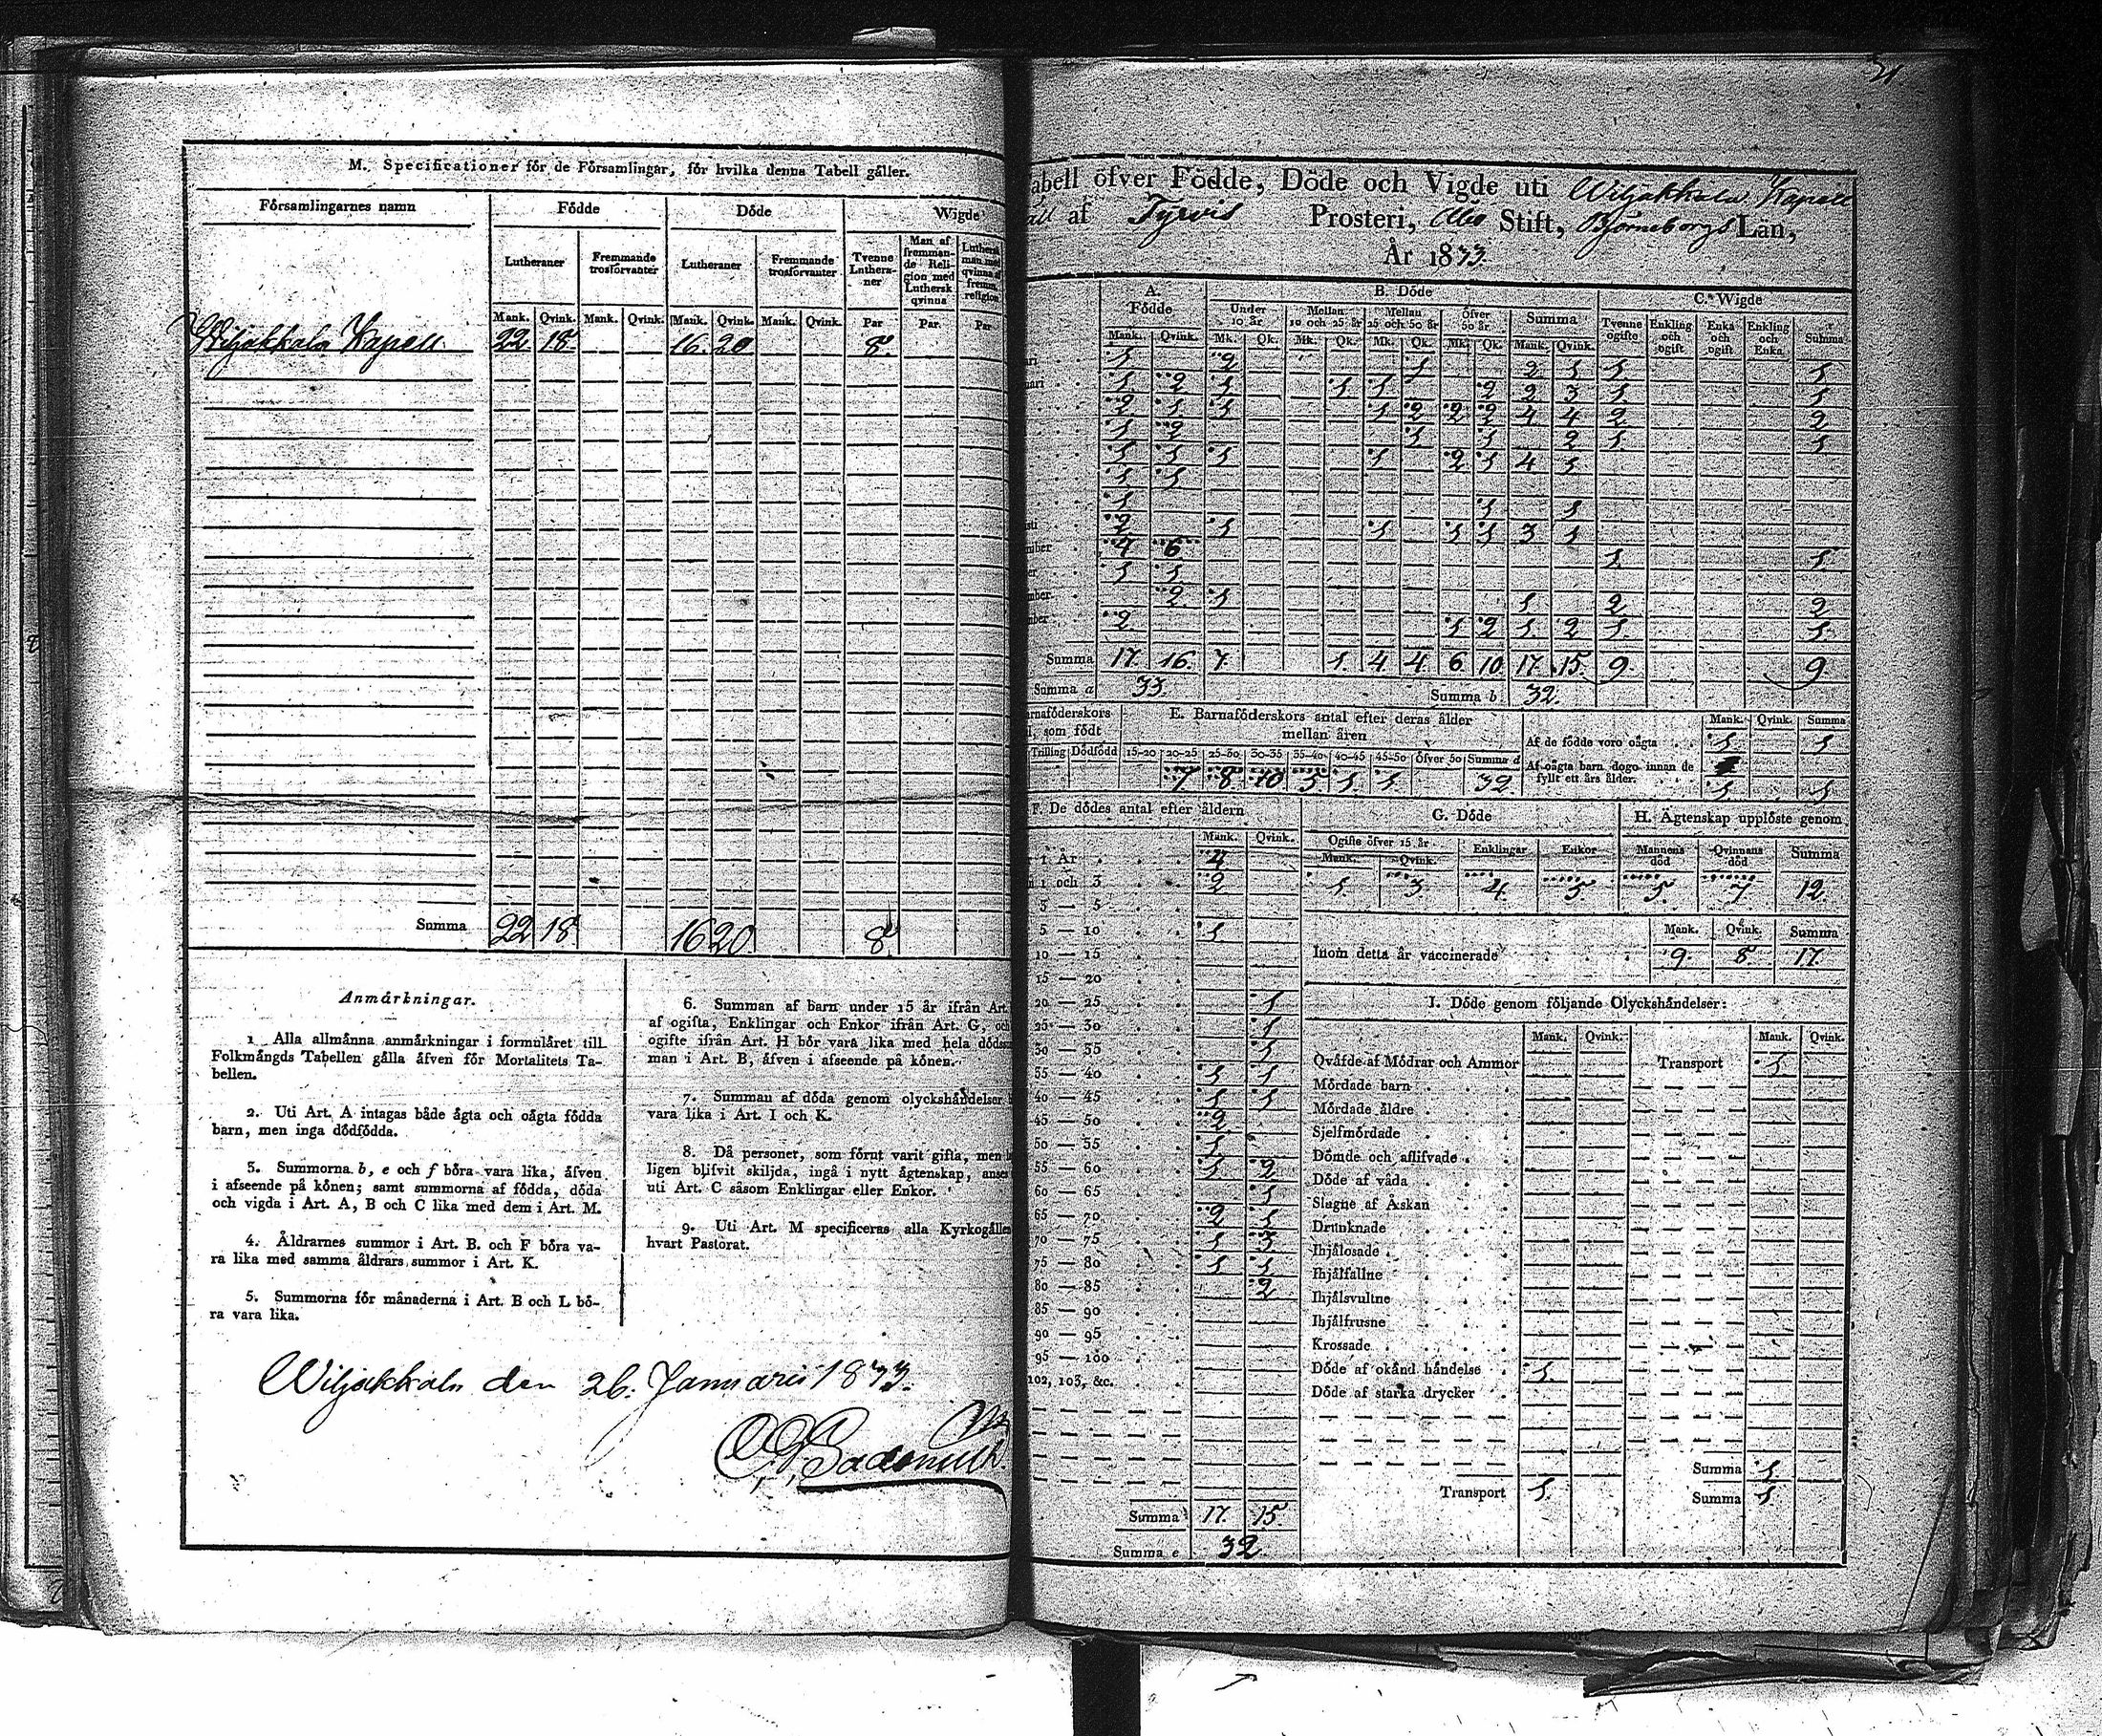 M. Specificationer för de Församlingar, för hvilka denna Tabell gäller.
Församlingarnes namn Födde Döde Wigde
Lutheraner Fremmande trosförvanter Lutheraner Fremmande trosförvanter Tvenne Lutheraner Man af fremmande Religion med Luthersk qvinna Luthersk man med qvinna af fremm. religion
Mank. Qvink. Mank. Qvink. Mank. Qvink. Mank. Qvink. Par Par. Par
Wiljakkala Kapell 22 18. 16. 20 8.
Summa 22 18 16 20 8.
Anmärkningar.
1 Alla allmänna anmärkningar i formuläret till
Folkmängds Tabellen gälla äfven för Mortalitets Ta-
bellen.
2. Uti Art. A intagas både ägta och oägta födda
barn, men inga dödfödda.
3. Summorna b, e och f böra vara lika, äfven
i afseende på könen; samt summorna af födda, döda
och vigda i Art. A, B och C lika med dem i Art. M.
4. Åldrarnes summor i Art. B. och F böra va-
ra lika med samma åldrars summor i Art. K.
5. Summorna för månaderna i Art. B och L bö-
ra vara lika.
6. Summan af barn under 15 år ifrån Art.
af ogifta, Enklingar och Enkor ifrån Art. G, och
ogifte ifrån Art. H bör vara lika med hela döds
man i Art. B, äfven i afseende på könen.
7. Summan af döda genom olyckshändelser
vara lika i Art. I och K.
8. Då personer, som förut varit gifta, men
ligen blifvit skiljda, ingå i nytt ägtenskap, anses
uti Art. C såsom Enklingar eller Enkor.
9. Uti Art. M specificeras alla Kyrkogäller
hvart Pastorat.
Wiljakkala den 26. Januarii 1833.
21
abell öfver Födde, Döde och Vigde uti Wiljakkala Kapell
äll af Tyrvis Prosteri, Åbo Stift, Björneborgs Län,
År 1833.
A. Födde B. Döde C. Wigde
Under 10 år Mellan 10 och 25 år Mellan 25 och 50 år Öfver 50 år Summa Tvenne ogifte Enkling och ogift Enka och ogift Enkling och Enka Summa
Mank. Qvink. Mk. Qk. Mk. Qk. Mk. Qk. Mk. Qk. Mank. Qvink.
ari 1 2 1 2 1 1 1
uari 1 2 1 1 1 2 2 3 1 1
2 1 1 1 2 2 2 4 4 2 2
1 2 1 1 2 1 1
1 1 1 1 2 1 4 1
1 1
1 1 1
sti 2 1 1 1 1 3 1
mber 4 6 1 1
er 1 1
mber 2 1 1 2 2
mber 2 1 2 1 2 1 1
Summa 17. 16. 7. 1. 4 4 6 10 17 15. 9. 9.
Summa a 33. Summa b 32.
rnaföderskors , som födt E. Barnaföderskors antal efter deras ålder mellan åren Mank. Qvink. Summa
Trilling Dödfödd 15-20 20-25 25-30 30-35 35-40 40-45 45-50 öfver 50 Summa d
Af de födde voro oägta 1 1
7 8. 10 5 1 1 32
Af oägta barn dogo innan de fyllt ett års ålder. 1 1
F. De dödes antal efter åldern G. Döde H. Ägtenskap upplöste genom
Mank. Qvink. Ogifte öfver 15 år Enklingar Enkor Mannens död Qvinnans död Summa
Mank. Qvink.
1 År 4
1 och 3 2
1. 3. 4. 5. 5. 7 12.
3 — 5
5 — 10 1
10 — 15
15 — 20
20 — 25 1
25 — 30 1
30 — 35 1
35 — 40 1 1
40 — 45 1 1
45 — 50 2
50 — 55 1
55 — 60 1 2
60 — 65 1
65 — 70 2 1
70 — 75 1 3
75 — 80 1 1
80 — 85 2
85 — 90
90 — 95
95 — 100
102, 103, &c.
Summa 17. 15.
Summa e 32
Mank. Qvink. Summa
Inom detta år vaccinerade 9. 8. 17.
I. Döde genom följande Olyckshändelser:
Mank. Qvink. Mank. Qvink.
Qväfde af Mödrar och Ammor Transport 1
Mördade barn
Mördade äldre
Sjelfmördade
Dömde och aflifvade
Döde af våda
Slagne af Åskan
Drunknade
Ihjälosade
Ihjälfallne
Ihjälsvultne
Ihjälfrusne
Krossade
Döde af okänd händelse 1
Döde af starka drycker
Summa 1
Transport 1. Summa 1